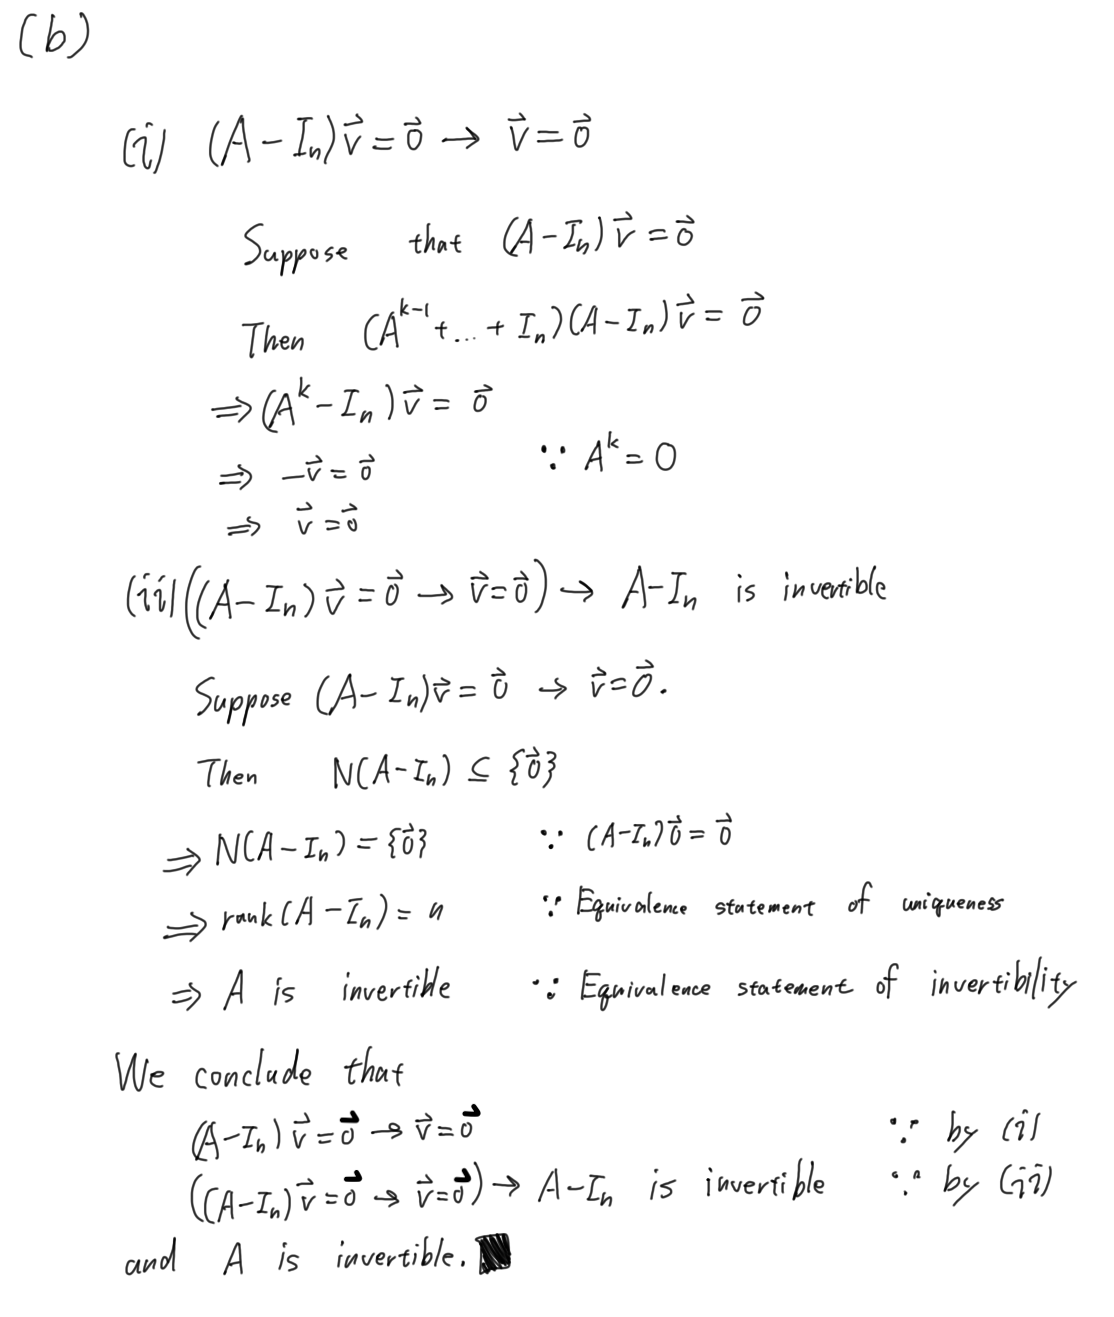 (b)
(i) (A-Iₙ)v⃗ = 0⃗ → v⃗ = 0⃗
Suppose that (A-Iₙ)v⃗ = 0⃗
Then (Aᵏ⁻¹+...+ Iₙ)(A-Iₙ)v⃗ = 0⃗
⇒ (Aᵏ-Iₙ)v⃗ = 0⃗
⇒ -v⃗ = 0⃗ ∵ Aᵏ = O
⇒ v⃗ = 0⃗
(ii) ((A-Iₙ)v⃗ = 0⃗ → v⃗ = 0⃗) → A-Iₙ is invertible
Suppose (A-Iₙ)v⃗ = 0⃗ → v⃗ = 0⃗.
Then N(A-Iₙ) ⊆ {0⃗}
⇒ N(A-Iₙ) = {0⃗} ∵ (A-Iₙ)0⃗ = 0⃗
⇒ rank(A-Iₙ) = n ∵ Equivalence statement of uniqueness
⇒ A is invertible ∵ Equivalence statement of invertibility
We conclude that
(A-Iₙ)v⃗ = 0⃗ → v⃗ = 0⃗ ∵ by (i)
((A-Iₙ)v⃗ = 0⃗ → v⃗ = 0⃗) → A-Iₙ is invertible ∵ by (ii)
and A is invertible. ■